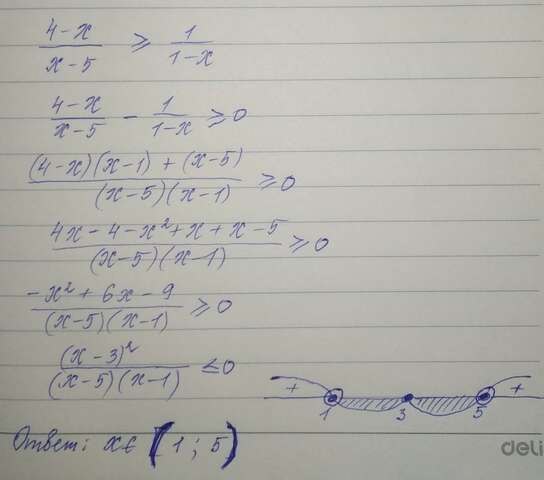 (4-x)/(x-5) ≥ 1/(1-x)
(4-x)/(x-5) - 1/(1-x) ≥ 0
((4-x)(x-1) + (x-5))/((x-5)(x-1)) ≥ 0
(4x-4-x²+x+x-5)/((x-5)(x-1)) ≥ 0
(-x²+6x-9)/((x-5)(x-1)) ≥ 0
(x-3)²/((x-5)(x-1)) ≤ 0
+ +
1 3 5
Ответ: x∈ (1; 5)
deli